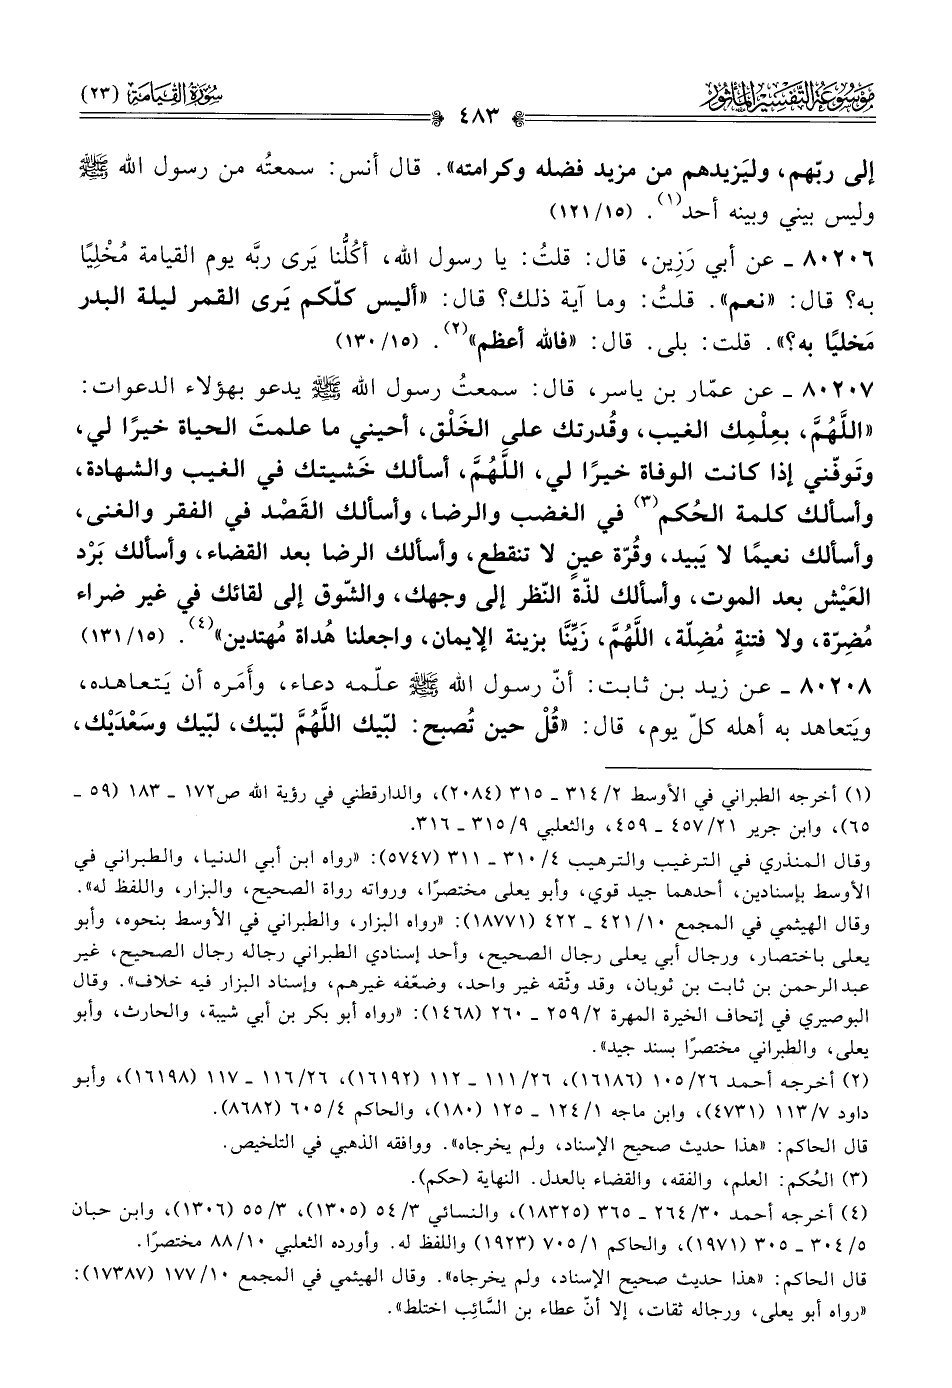 موسوعة التفسير المأثور
٤٨٣
سورة القيامة (٢٣)
إلى ربّهم، وليَزيدهم من مزيد فضله وكرامته». قال أنس: سمعتُه من رسول الله ﷺ
وليس بيني وبينه أحد(١). (١٥/ ١٢١)
٨٠٢٠٦ ـ عن أبي رَزِين، قال: قلتُ: يا رسول الله، أكُلُّنا يَرى ربَّه يوم القيامة مُخْلِيًا
به؟ قال: «نعم». قلتُ: وما آية ذلك؟ قال: «أليس كلّكم يَرى القمر ليلة البدر
مَخليًا به؟». قلت: بلى. قال: «فالله أعظم»(٢). (١٥/ ١٣٠)
٨٠٢٠٧ ـ عن عمّار بن ياسر، قال: سمعتُ رسول الله ﷺ يدعو بهؤلاء الدعوات:
«اللَّهُمَّ، بعِلْمِك الغيب، وقُدرتك على الخَلْق، أحيني ما علمتَ الحياة خيرًا لي،
وتَوفّني إذا كانت الوفاة خيرًا لي، اللَّهُمَّ، أسألك خَشيتك في الغيب والشهادة،
وأسألك كلمة الحُكم(٣) في الغضب والرضا، وأسألك القَصْد في الفقر والغنى،
وأسألك نعيمًا لا يَبيد، وقُرّة عينٍ لا تنقطع، وأسألك الرضا بعد القضاء، وأسألك بَرْد
العَيْش بعد الموت، وأسألك لذّة النّظر إلى وجهك، والشّوق إلى لقائك في غير ضراء
مُضِرّة، ولا فتنةٍ مُضِلّة، اللَّهُمَّ، زَيِّنَّا بزينة الإيمان، واجعلنا هُداة مُهتدين»(٤). (١٥/ ١٣١)
٨٠٢٠٨ ـ عن زيد بن ثابت: أنّ رسول الله ﷺ علّمه دعاء، وأَمَره أن يَتعاهده،
ويَتعاهد به أهله كلّ يوم، قال: «قُلْ حين تُصبح: لبّيك اللَّهُمَّ لبّيك، لبّيك وسَعْدَيْك،
(١) أخرجه الطبراني في الأوسط ٢/ ٣١٤ ـ ٣١٥ (٢٠٨٤)، والدارقطني في رؤية الله ص١٧٢ ـ ١٨٣ (٥٩ ـ
٦٥)، وابن جرير ٢١/ ٤٥٧ ـ ٤٥٩، والثعلبي ٩/ ٣١٥ ـ ٣١٦.
وقال المنذري في الترغيب والترهيب ٤/ ٣١٠ ـ ٣١١ (٥٧٤٧): «رواه ابن أبي الدنيا، والطبراني في
الأوسط بإسنادين، أحدهما جيد قوي، وأبو يعلى مختصرًا، ورواته رواة الصحيح، والبزار، واللفظ له».
وقال الهيثمي في المجمع ١٠/ ٤٢١ ـ ٤٢٢ (١٨٧٧١): «رواه البزار، والطبراني في الأوسط بنحوه، وأبو
يعلى باختصار، ورجال أبي يعلى رجال الصحيح، وأحد إسنادي الطبراني رجاله رجال الصحيح، غير
عبدالرحمن بن ثابت بن ثوبان، وقد وثّقه غير واحد، وضعّفه غيرهم، وإسناد البزار فيه خلاف». وقال
البوصيري في إتحاف الخيرة المهرة ٢/ ٢٥٩ ـ ٢٦٠ (١٤٦٨): «رواه أبو بكر بن أبي شيبة، والحارث، وأبو
يعلى، والطبراني مختصرًا بسند جيد».
(٢) أخرجه أحمد ٢٦/ ١٠٥ (١٦١٨٦)، ٢٦/ ١١١ ـ ١١٢ (١٦١٩٢)، ٢٦/ ١١٦ ـ ١١٧ (١٦١٩٨)، وأبو
داود ٧/ ١١٣ (٤٧٣١)، وابن ماجه ١/ ١٢٤ ـ ١٢٥ (١٨٠)، والحاكم ٤/ ٦٠٥ (٨٦٨٢).
قال الحاكم: «هذا حديث صحيح الإسناد، ولم يخرجاه». ووافقه الذهبي في التلخيص.
(٣) الحُكم: العلم، والفقه، والقضاء بالعدل. النهاية (حكم).
(٤) أخرجه أحمد ٣٠/ ٢٦٤ ـ ٣٦٥ (١٨٣٢٥)، والنسائي ٣/ ٥٤ (١٣٠٥)، ٣/ ٥٥ (١٣٠٦)، وابن حبان
٥/ ٣٠٤ ـ ٣٠٥ (١٩٧١)، والحاكم ١/ ٧٠٥ (١٩٢٣) واللفظ له. وأورده الثعلبي ١٠/ ٨٨ مختصرًا.
قال الحاكم: «هذا حديث صحيح الإسناد، ولم يخرجاه». وقال الهيثمي في المجمع ١٠/ ١٧٧ (١٧٣٨٧):
«رواه أبو يعلى، ورجاله ثقات، إلا أنّ عطاء بن السَّائِب اختلط».